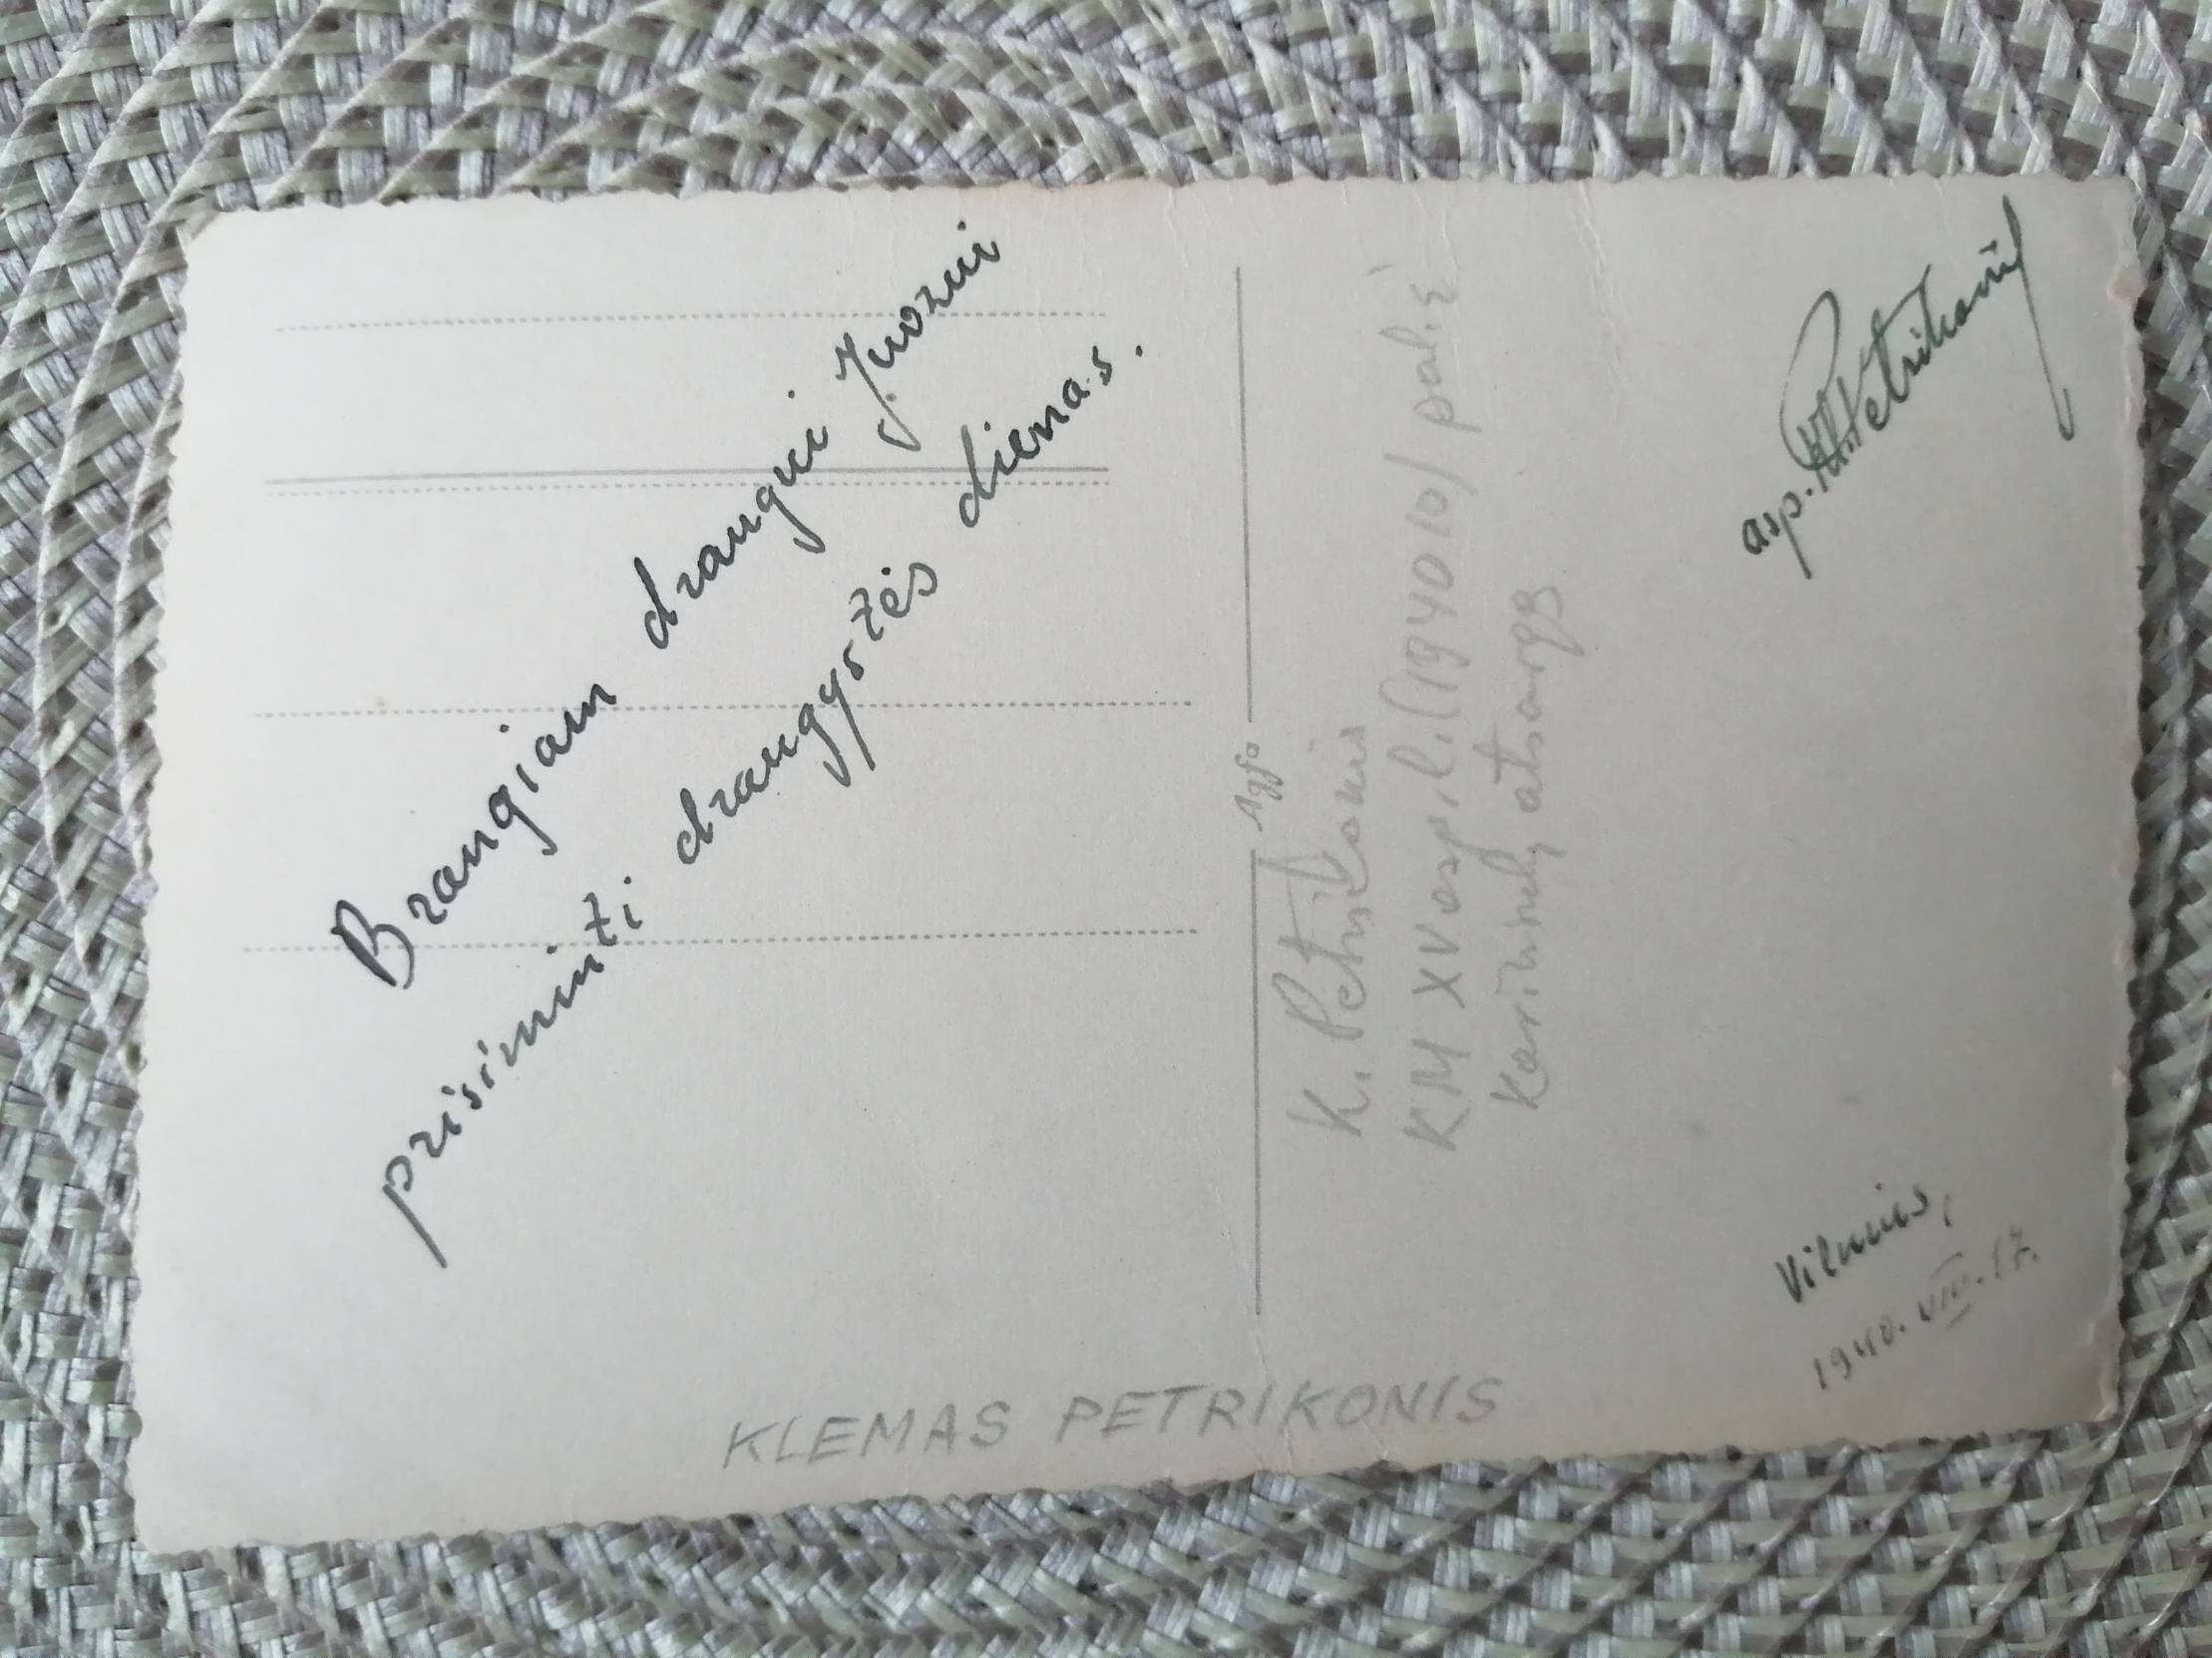 Brangiam draugui Juozui
prisiminti draugystės dienas.
asp. K. Petrikonis
Vilnius,
1940. VIII. 17.
Agfa
K. Petrikonis
KM XV asp. l. (1940 10) pal. ė
Karininkų atsarga
KLEMAS PETRIKONIS